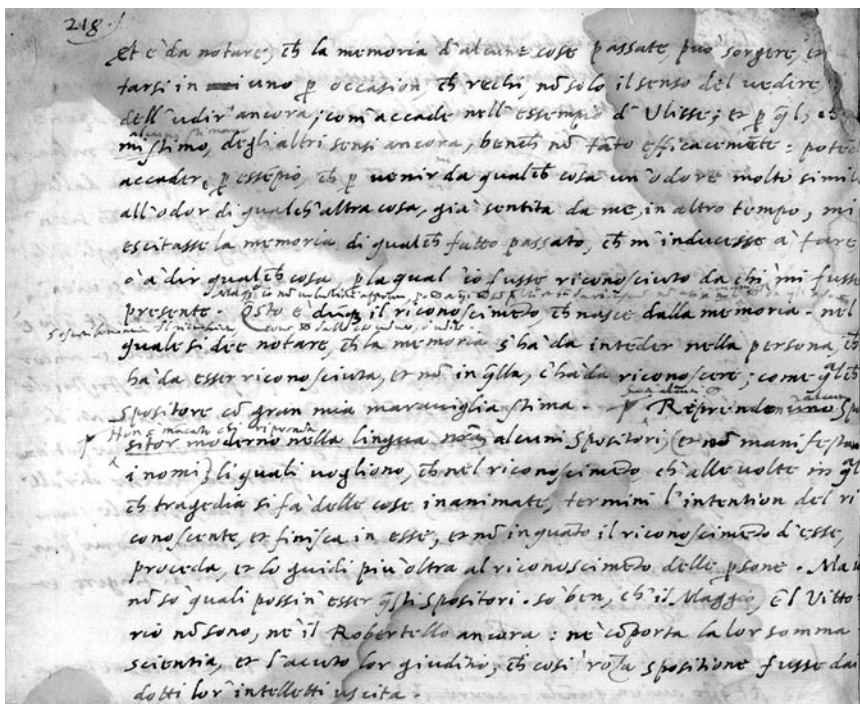 218.
Et è da notare, ch la memoria d'alcune cose passate, può sorgere, et
farsi in uno p occasion, ch rechi, nõ solo il senso del uedere,
dell'udir' ancora; com'accade nell'essempio d'Ulisse; et p
mi stimo, degli altri sensi ancora, bench nõ tãto efficacemẽte: potẽd
accader, p essẽpio, ch p uenir da qualch cosa un'odore molto simil
all'odor di qualch'altra cosa, già sentita da me, in altro tempo, mi
escitasse la memoria di qualch fatto passato, ch m'inducesse à fare,
ò à dir qualch cosa, p la qual io fusse riconosciuto da chi mi fusse
presente. Q̃sto è dũq il riconoscimẽto, ch nasce dalla memoria. nel
quale si dee notare, ch la memoria s'ha da intẽder nella persona, ch
ha da esser riconosciuta, et nõ in q̃lla, c'ha da riconoscere; come q̃lch
spositore cõ gran mia marauiglia stima. Reprendon Sp
Non è mãcato chi
sitor moderno nella lingua alcuni Spositori, (et nõ manifesta
i nomi) li quali uogliono, ch nel riconoscimẽto, ch'alle uolte in q̃lch
ch tragedia si fà delle cose inanimate, termini l'intention del ri
conoscente, et finisca in esse, et nõ in quãto il riconoscimẽto d'esse,
proceda, et lo guidi più oltra al riconoscimẽto delle psone. Ma io
nõ sò quali possin'esser q̃sti Spositori. so ben, ch'il Maggio, e'l Vitto
rio nõ sono, nè il Robertello ancora: nè cõporta la lor somma
scientia, et l'acuto lor giuditio, ch così roza spositione fusse dai
dotti lor'intelletti uscita.